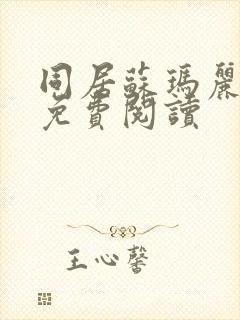 同居蘇瑪麗
免費閱讀
王心馨